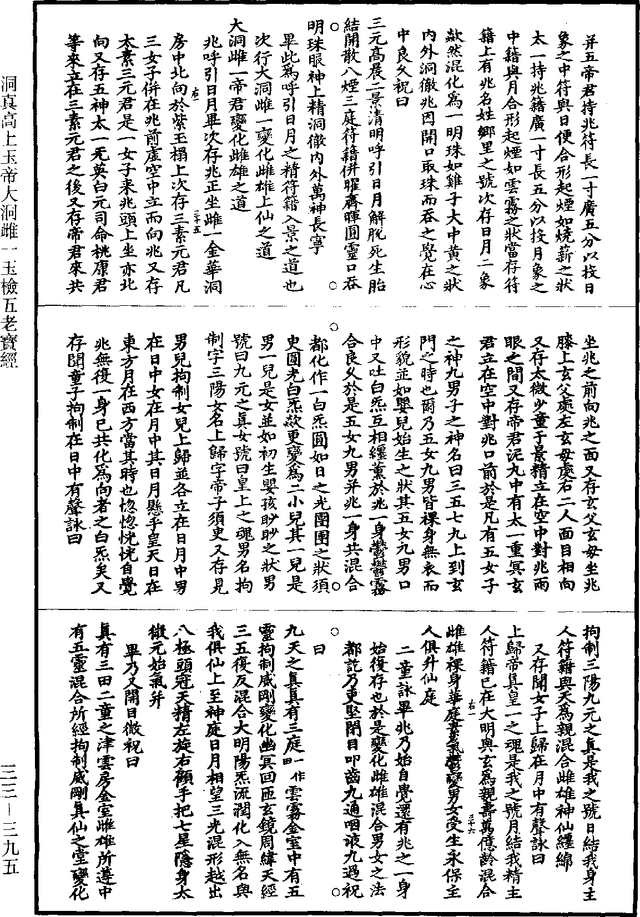 洞真高上玉帝大洞雌一玉檢五老寶經
三三—三九五
并五帝君持兆符長一寸廣五分以投日
象之中符與日便合形起煙如燒薪之狀
太一持兆籍廣一寸長五分以投月象之
中籍與月合形起煙如雲霧之狀當存符
籍上有兆名姓鄉里之號次存日月二象
歘然混化為一明珠如雞子大中黃之狀
內外洞徹兆因開口取珠而吞之覺在心
中良久祝曰
三元高晨二景清明呼引日月解脫死生胎
結開散八煙三庭符籍併曜齊暉圓靈口吞
明珠眼神上精洞徹內外萬神長寧
畢此為呼引日月之精符籍入景之道也
次行大洞雌一變化雌雄上仙之道
大洞雌一帝君變化雌雄之道
兆呼引日月畢次存兆正坐雌一金華洞
房中北向於紫玉榻上次存三素元君凡
三女子併在兆前虛空中立而向兆又存
太素三元君是一女子來兆頭上坐亦北
向又存五神太一无英白元司命桃康君
等來立在三素元君之後又存帝君來共
坐兆之前向兆之面又存玄父玄母坐兆
膝上玄父處左玄母處右二人面目相向
又存太微少童子景精立在空中對兆兩
眼之間又存帝君泥丸中有太一重冥玄
君立在空中對兆口前於是凡有五女子
之神九男子之神名曰三五七九上到玄
門之時也爾乃五女九男皆裸身無衣而
形貌並如嬰兒始生之狀其五女九男口
中又吐白炁互相纏薰於兆一身鬱鬱霧
合良久於是五女九男并兆一身共混合
都化作一白炁圓如日之光團團之狀須
史圓光白炁歘更變為二小兒其一兒是
男一兒是女並如初生嬰孩眇眇之狀男
號曰九元之真女號曰皇上之魂男名拘
制字三陽女名上歸字帝子須史又存見
男兒拘制女兒上歸並各立在日月中男
在日中女在月中其日月懸乎皇天日在
東方月在西方當其時也惚惚恍恍自覺
兆無復一身已共化為向者之白炁矣又
存聞童子拘制在日中有聲詠曰
拘制三陽九元之真是我之號日結我身主
人符籍與天為親混合雌雄神仙纏綿
又存聞女子上歸在月中有聲詠曰
上歸帝真皇一之魂是我之號月結我精主
人符籍已在大明與玄為親壽萬億齡混合
雌雄裸身華庭素氣鬱變男女受生永保主
人俱升仙庭
二童詠畢兆乃始自覺還有兆之一身
始復存也於是變化雌雄混合男女之法
都訖乃更堅閉目叩齒九通咽液九過祝
曰
九天之真真有三庭一作田雲霧金室中有五
靈拘制威剛變化幽冥回匝玄鏡周緯天經
三五復反混合大明陽炁流潤化入無名與
我俱仙上至神庭日月相望三光混形越出
八極頭冠天精左旋右顧手把七星隱身太
微元始氣并
畢乃又開目微祝曰
真有三田二童之津雲房金室雌雄所遵中
有五靈混合所經拘制威剛真仙之堂變化